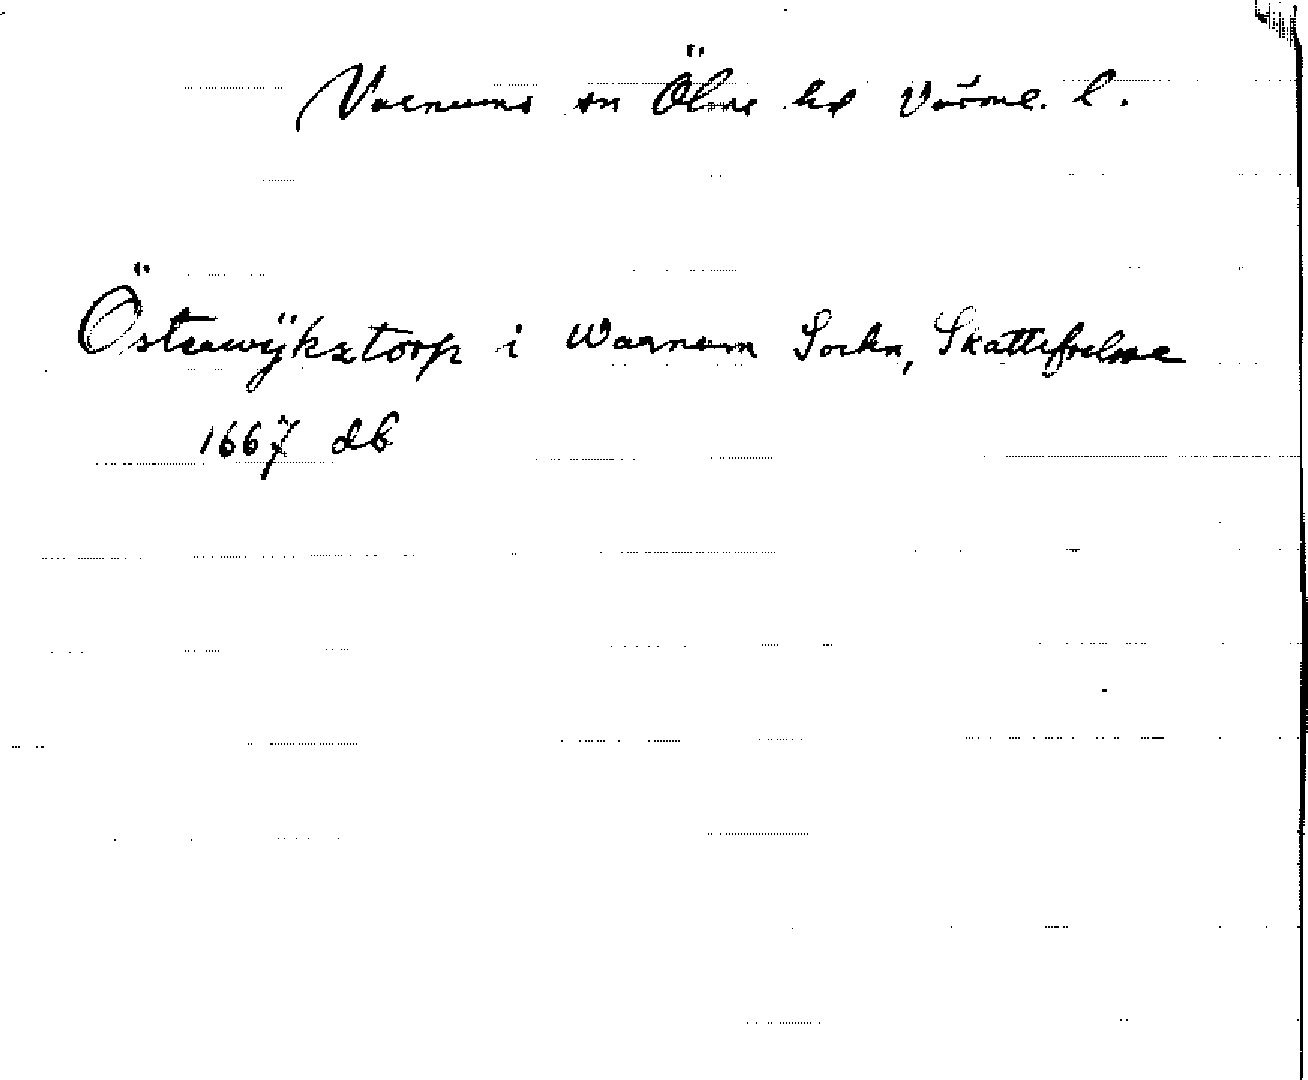 Varnums sn Ölme hd Värml. l.
Östeewÿkztorp i Warnum Sockn, Skattefrelsse
1667 db